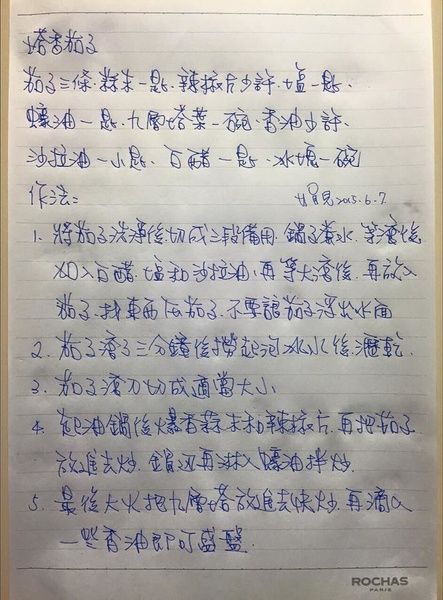 塔香茄子
茄子三條.蒜末一匙.辣椒片少許.塩一匙.
蠔油一匙.九層塔葉一碗.香油少許.
沙拉油一小匙.白醋一匙.冰塊一碗
作法:
2015.6.7
1. 將茄子洗淨後切成三段備用.鍋子煮水.等滾後
加入白醋.塩和沙拉油.再等大滾後.再放入
茄子.找東西压茄子.不要讓茄子浮出水面
2. 茄子滾了三分鐘後撈起泡冰水後.瀝乾.
3. 茄子滾刀切成適當大小
4. 起油鍋後爆香蒜末和辣椒片.再把茄子
放進去炒.鍋边再淋入蠔油拌炒.
5. 最後大火把九層塔放進去快炒.再滴入
一些香油即可盛盤.
ROCHAS
PARIS